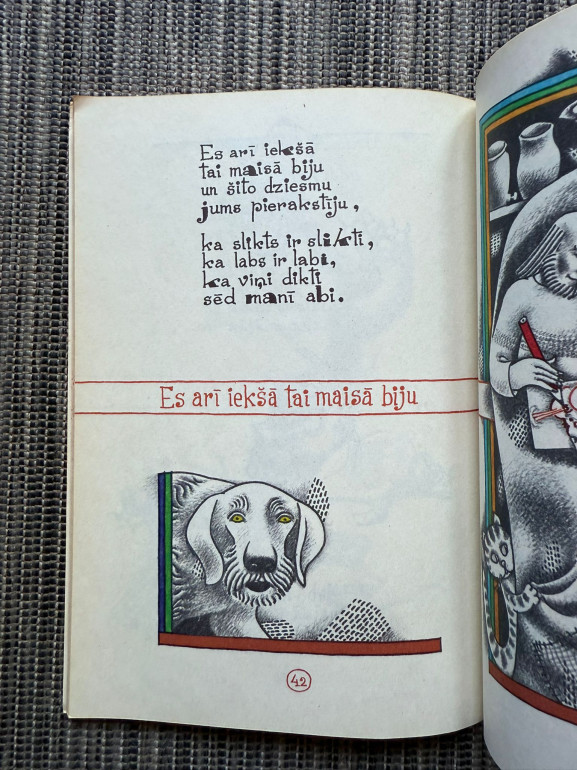 Es arī iekšā
tai maisā biju
un šito dziesmu
jums pierakstīju,
ka slikts ir slikti,
ka labs ir labi,
ka viņi dikti
sēd manī abi.
Es arī iekšā tai maisā biju
42